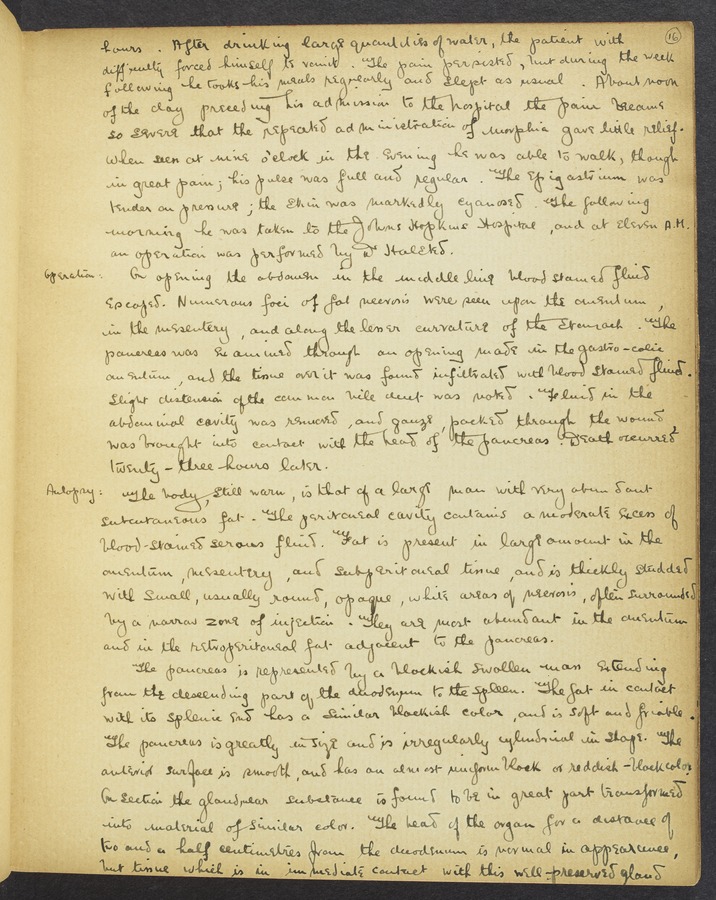 16
hours. After drinking large quantities of water, the patient with
difficulty forced himself to vomit. The pain persisted, but during the week
following he tooks his meals regularly and slept as usual. About noon
of the day preceding his admission to the hospital the pain became
so severe that the repeated administration of morphia gave little relief.
When seen at nine o'clock in the evening he was able to walk, though
in great pain; his pulse was full and regular. The Epigastrium was
tender on pressure; the skin was markedly cyanosed. The following
morning he was taken to the Johns Hopkins Hospital, and at eleven A.M.
an operation was performed by Dr Halsted.
Operation: On opening the abdomen in the middle line blood stained fluid
escaped. Numerous foci of fat necrosis were seen upon the omentum,
in the mesentery, and along the lesser curvature of the stomach. The
pancreas was examined through an opening made in the gastro-colic
omentum, and the tissue over it was found infiltrated with blood stained fluid.
Slight distension of the common bile duct was noted. Fluid in the
abdominal cavity was removed, and gauze, packed through the wound
was brought into contact with the head of the pancreas. Death occurred
twenty-three hours later.
Autopsy: The body, still warm, is that of a large man with very abundant
subcutaneous fat. The peritoneal cavity contains a moderate excess of
blood-stained serous fluid. Fat is present in large amount in the
omentum, mesentery, and subperitoneal tissue, and is thickly studded
with small, usually round, opaque, white areas of necrosis, often surrounded
by a narrow zone of injection. They are most abundant in the omentum
and in the retroperitoneal fat adjacent to the pancreas.
The pancreas is represented by a blackish swollen mass extending
from the descending part of the duodenum to the spleen. The fat in contact
with its splenic end has a similar blackish color, and is soft and friable.
The pancreas is greatly in size and is irregularly cylindrical in shape. The
anterior surface is smooth, and has an almost uniform black or reddish-black color.
On section the glandular substance is found to be in great part transformed
into material of similar color. The head of the organ for a distance of
two and a half centimetres from the duodenum is normal in appearance,
but tissue which is in immediate contact with this well-preserved gland